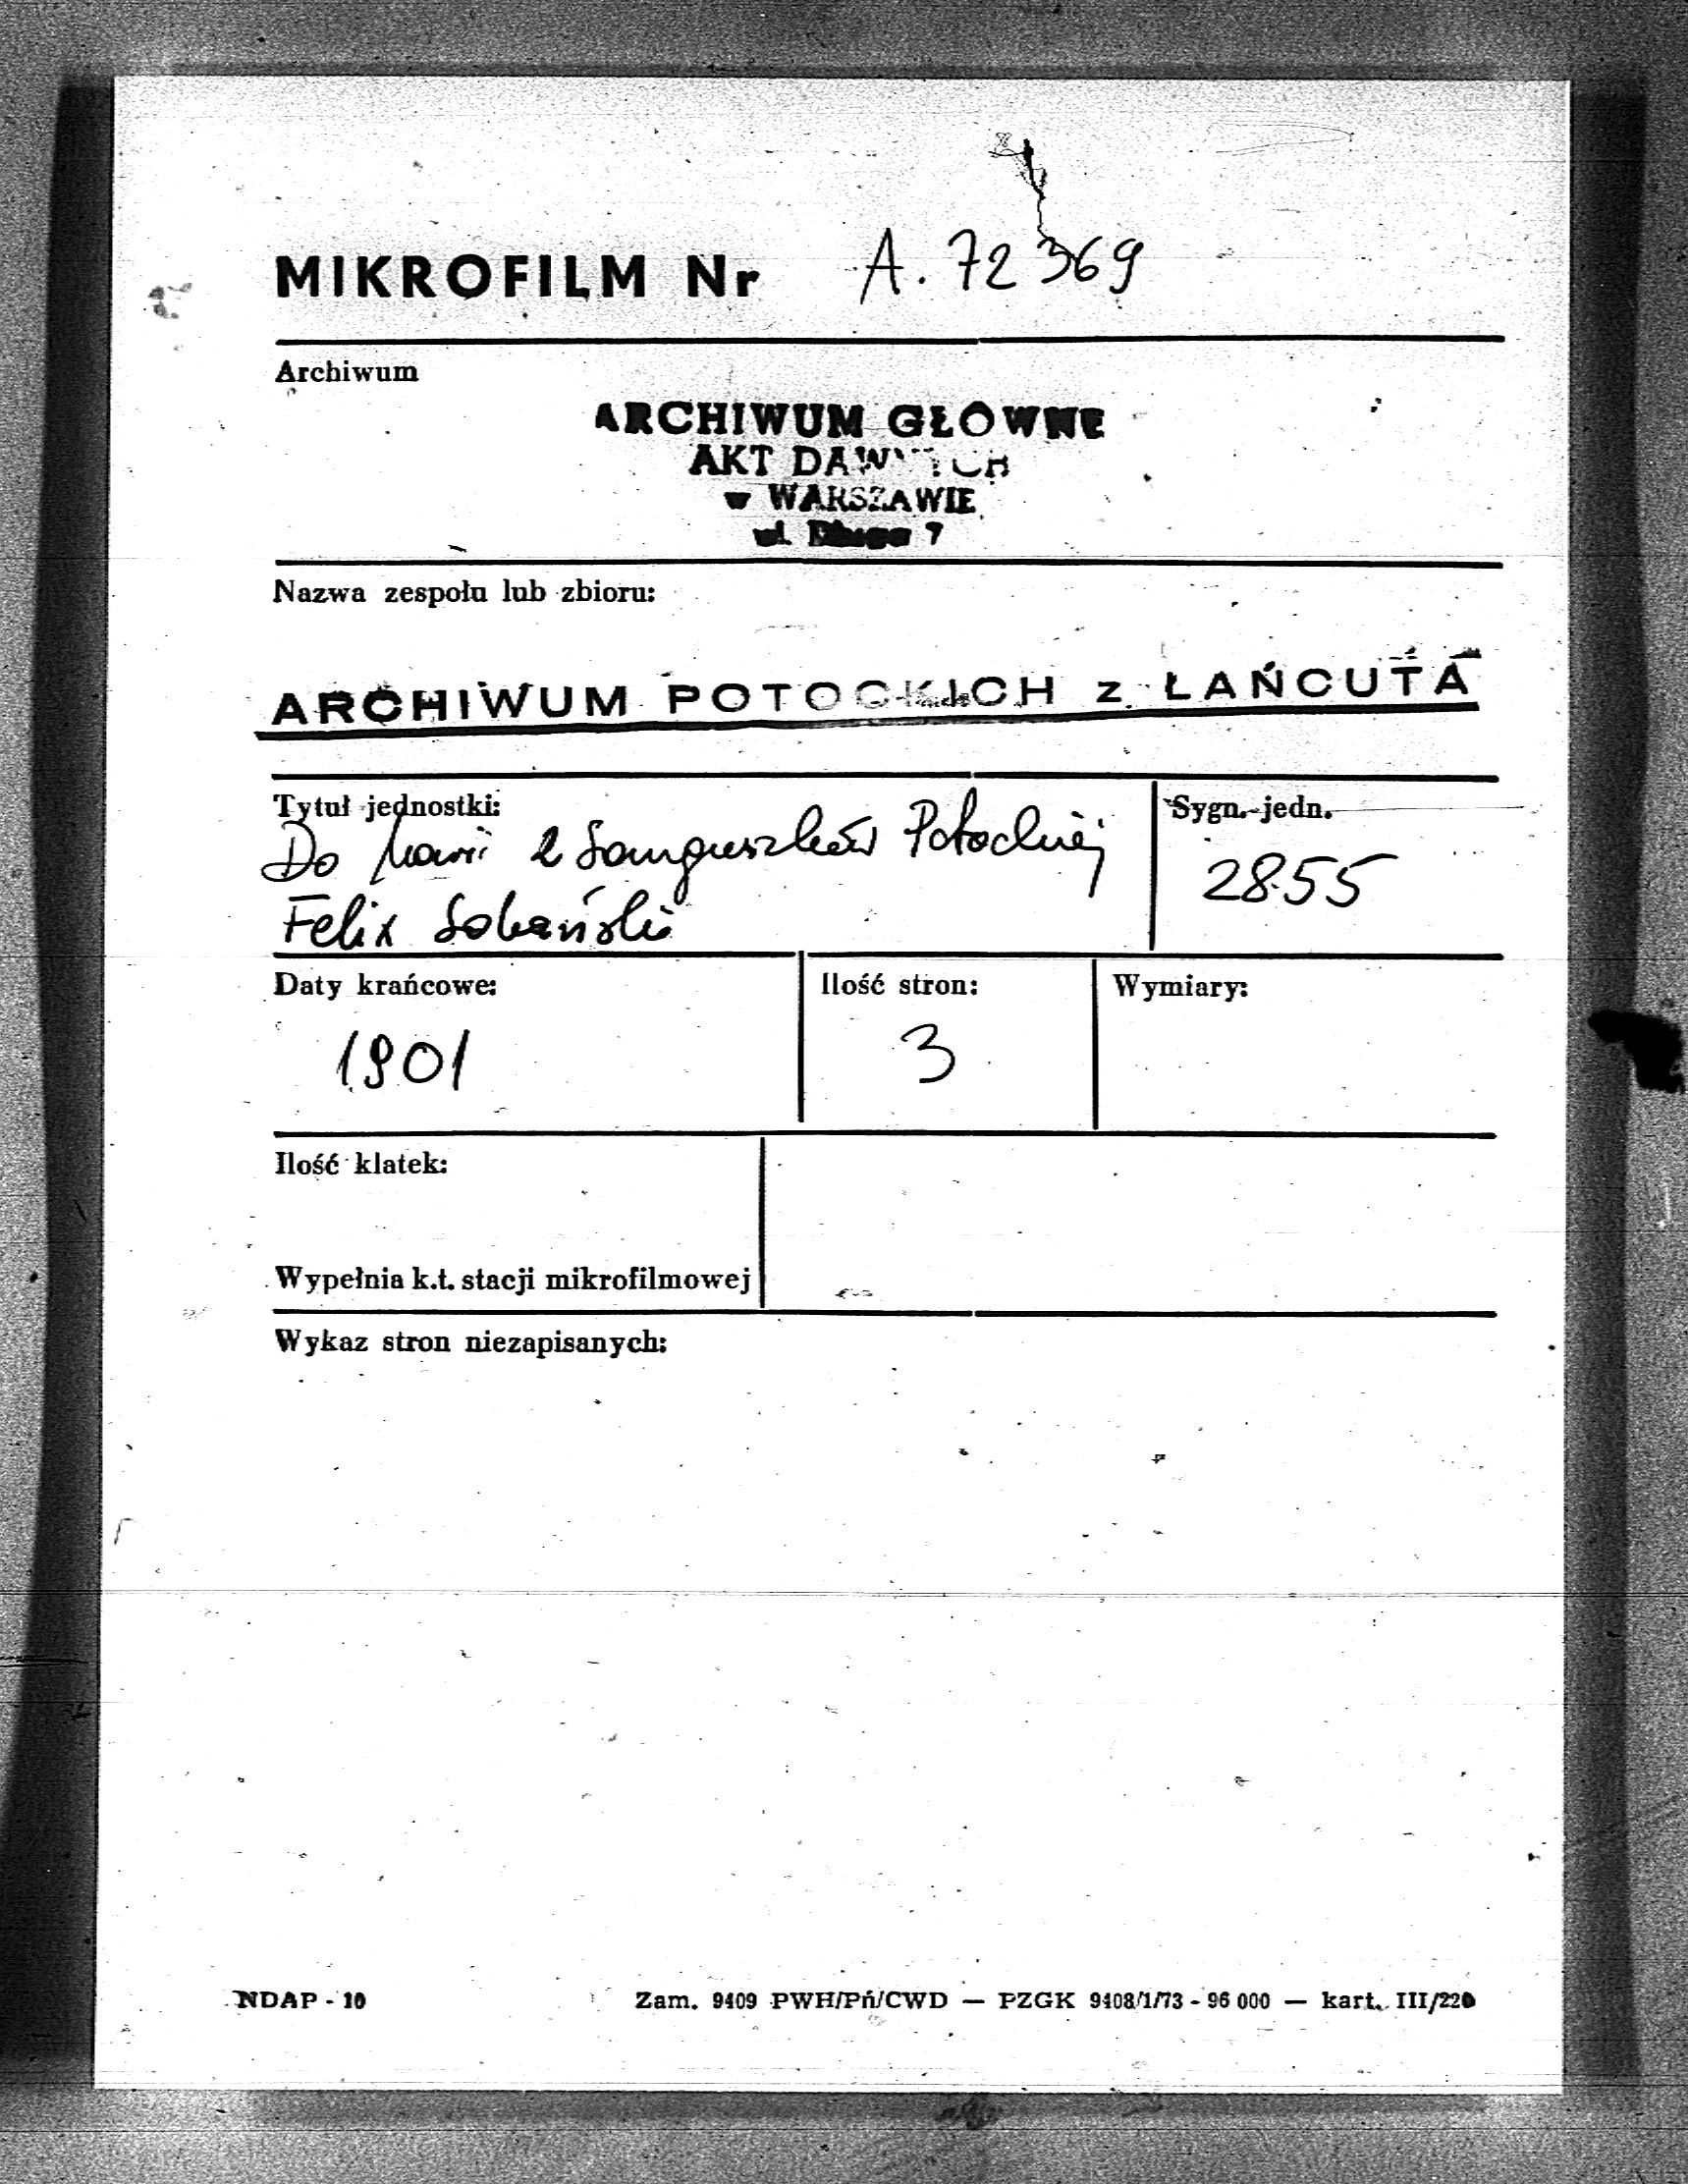 MIKROFILM Nr A. 72369
Archiwum
ARCHIWUM GŁÓWNE
AKT DAWNYCH
w WARSZAWIE
ul. Długa 7
Nazwa zespołu lub zbioru:
ARCHIWUM POTOCKICH z ŁAŃCUTA
Tytuł jednostki:
Do Marii z Sanguszków Potockiej
Felix Sobański
Sygn. jedn.
2855
Daty krańcowe:
1901
Ilość stron:
3
Wymiary:
Ilość klatek:
Wypełnia k.t. stacji mikrofilmowej
Wykaz stron niezapisanych:
NDAP - 10
Zam. 9409 PWH/Pń/CWD — PZGK 9408/1/73 - 96 000 — kart. III/220